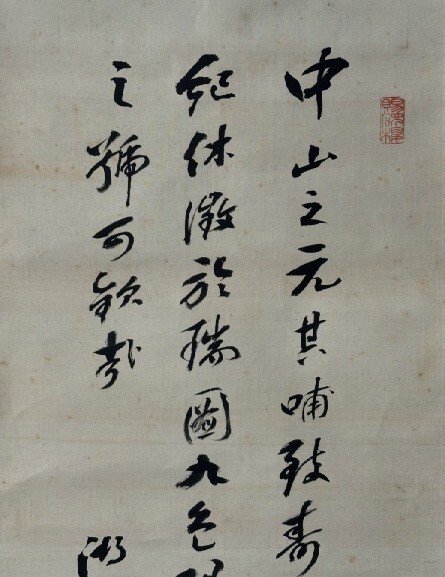 中山之元其哺致壽
紀休徵於瑞圖九色
之號可欽哉
湖